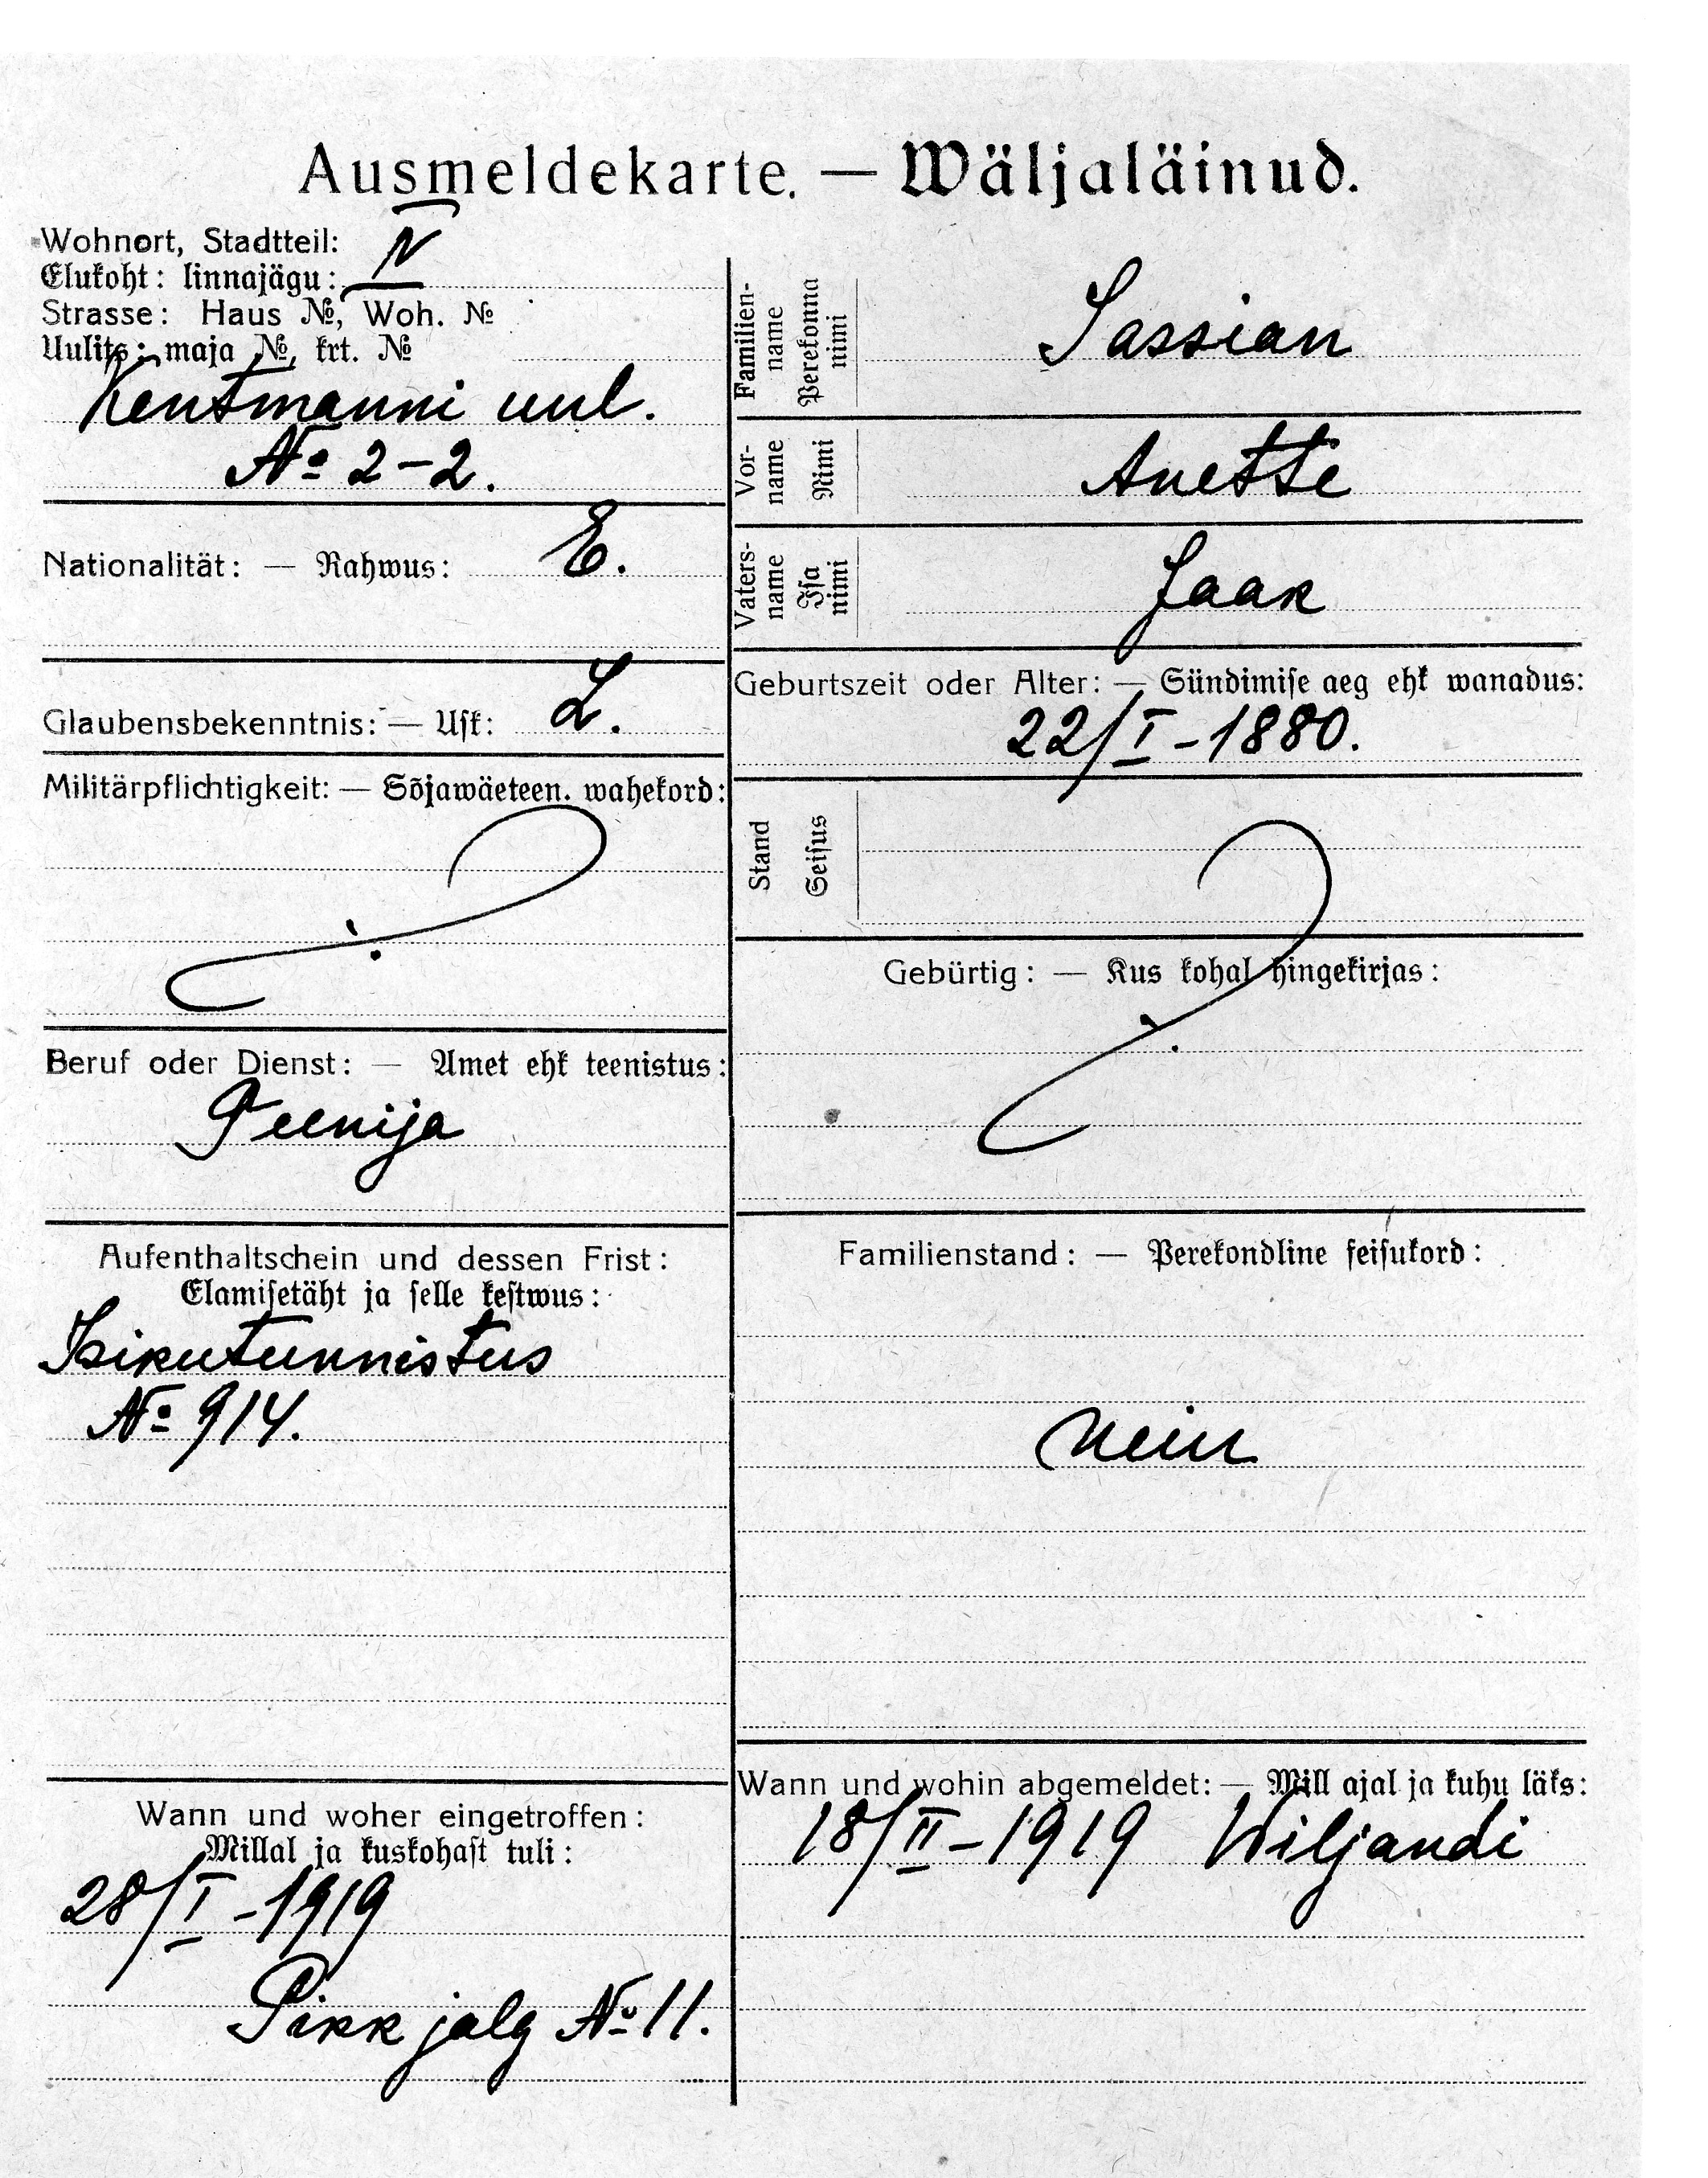 Ausmeldekarte. — Wäljaläinud.
Wohnort, Stadtteil:
Elukoht: linnajägu: IV
Strasse: Haus №, Woh. №
Uulits: maja №, krt. №
Kentmanni uul.
№ 2-2.
Nationalität: — Rahwus: E.
Glaubensbekenntnis: — Usk: L.
Militärpflichtigkeit: — Sõjawäeteen. wahekord:
Beruf oder Dienst: — Amet ehk teenistus:
Teenija
Aufenthaltschein und dessen Frist:
Elamisetäht ja selle kestwus:
Isikutunnistus
№ 914.
Wann und woher eingetroffen:
Millal ja kuskohast tuli:
28/I -1919
Pikk jalg № 11.
Familien-
name
Perekonna
nimi
Sassian
Vor-
name
Nimi
Anette
Vaters-
name
Isa
nimi
Jaak
Geburtszeit oder Alter: — Sündimise aeg ehk wanadus:
22/I -1880.
Stand
Seisus
Gebürtig: — Kus kohal hingekirjas:
Familienstand: — Perekondline seisukord:
Wann und wohin abgemeldet: — Mill ajal ja kuhu läks:
18/II -1919 Wiljandi